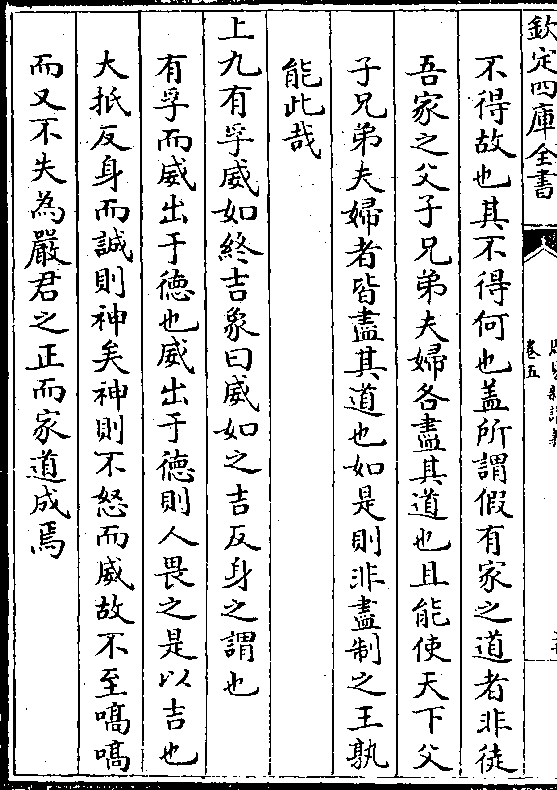 欽定四庫全書
卷五
不得故也其不得何也盖所謂假有家之道者非徒
吾家之父子兄弟夫婦各盡其道也且能使天下父
子兄弟夫婦者皆盡其道也如是則非盡制之王孰
能此哉
上九有孚威如終吉象曰威如之吉反身之謂也
有孚而威出于德也威出于德則人畏之是以吉也
大抵反身而誠則神矣神則不怒而威故不至嗃嗃
而又不失為嚴君之正而家道成焉